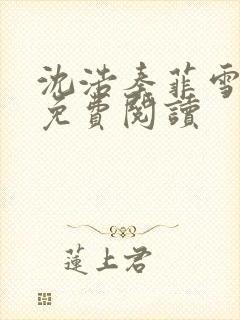 沈浩秦菲雪
免費閱讀
蓮上君